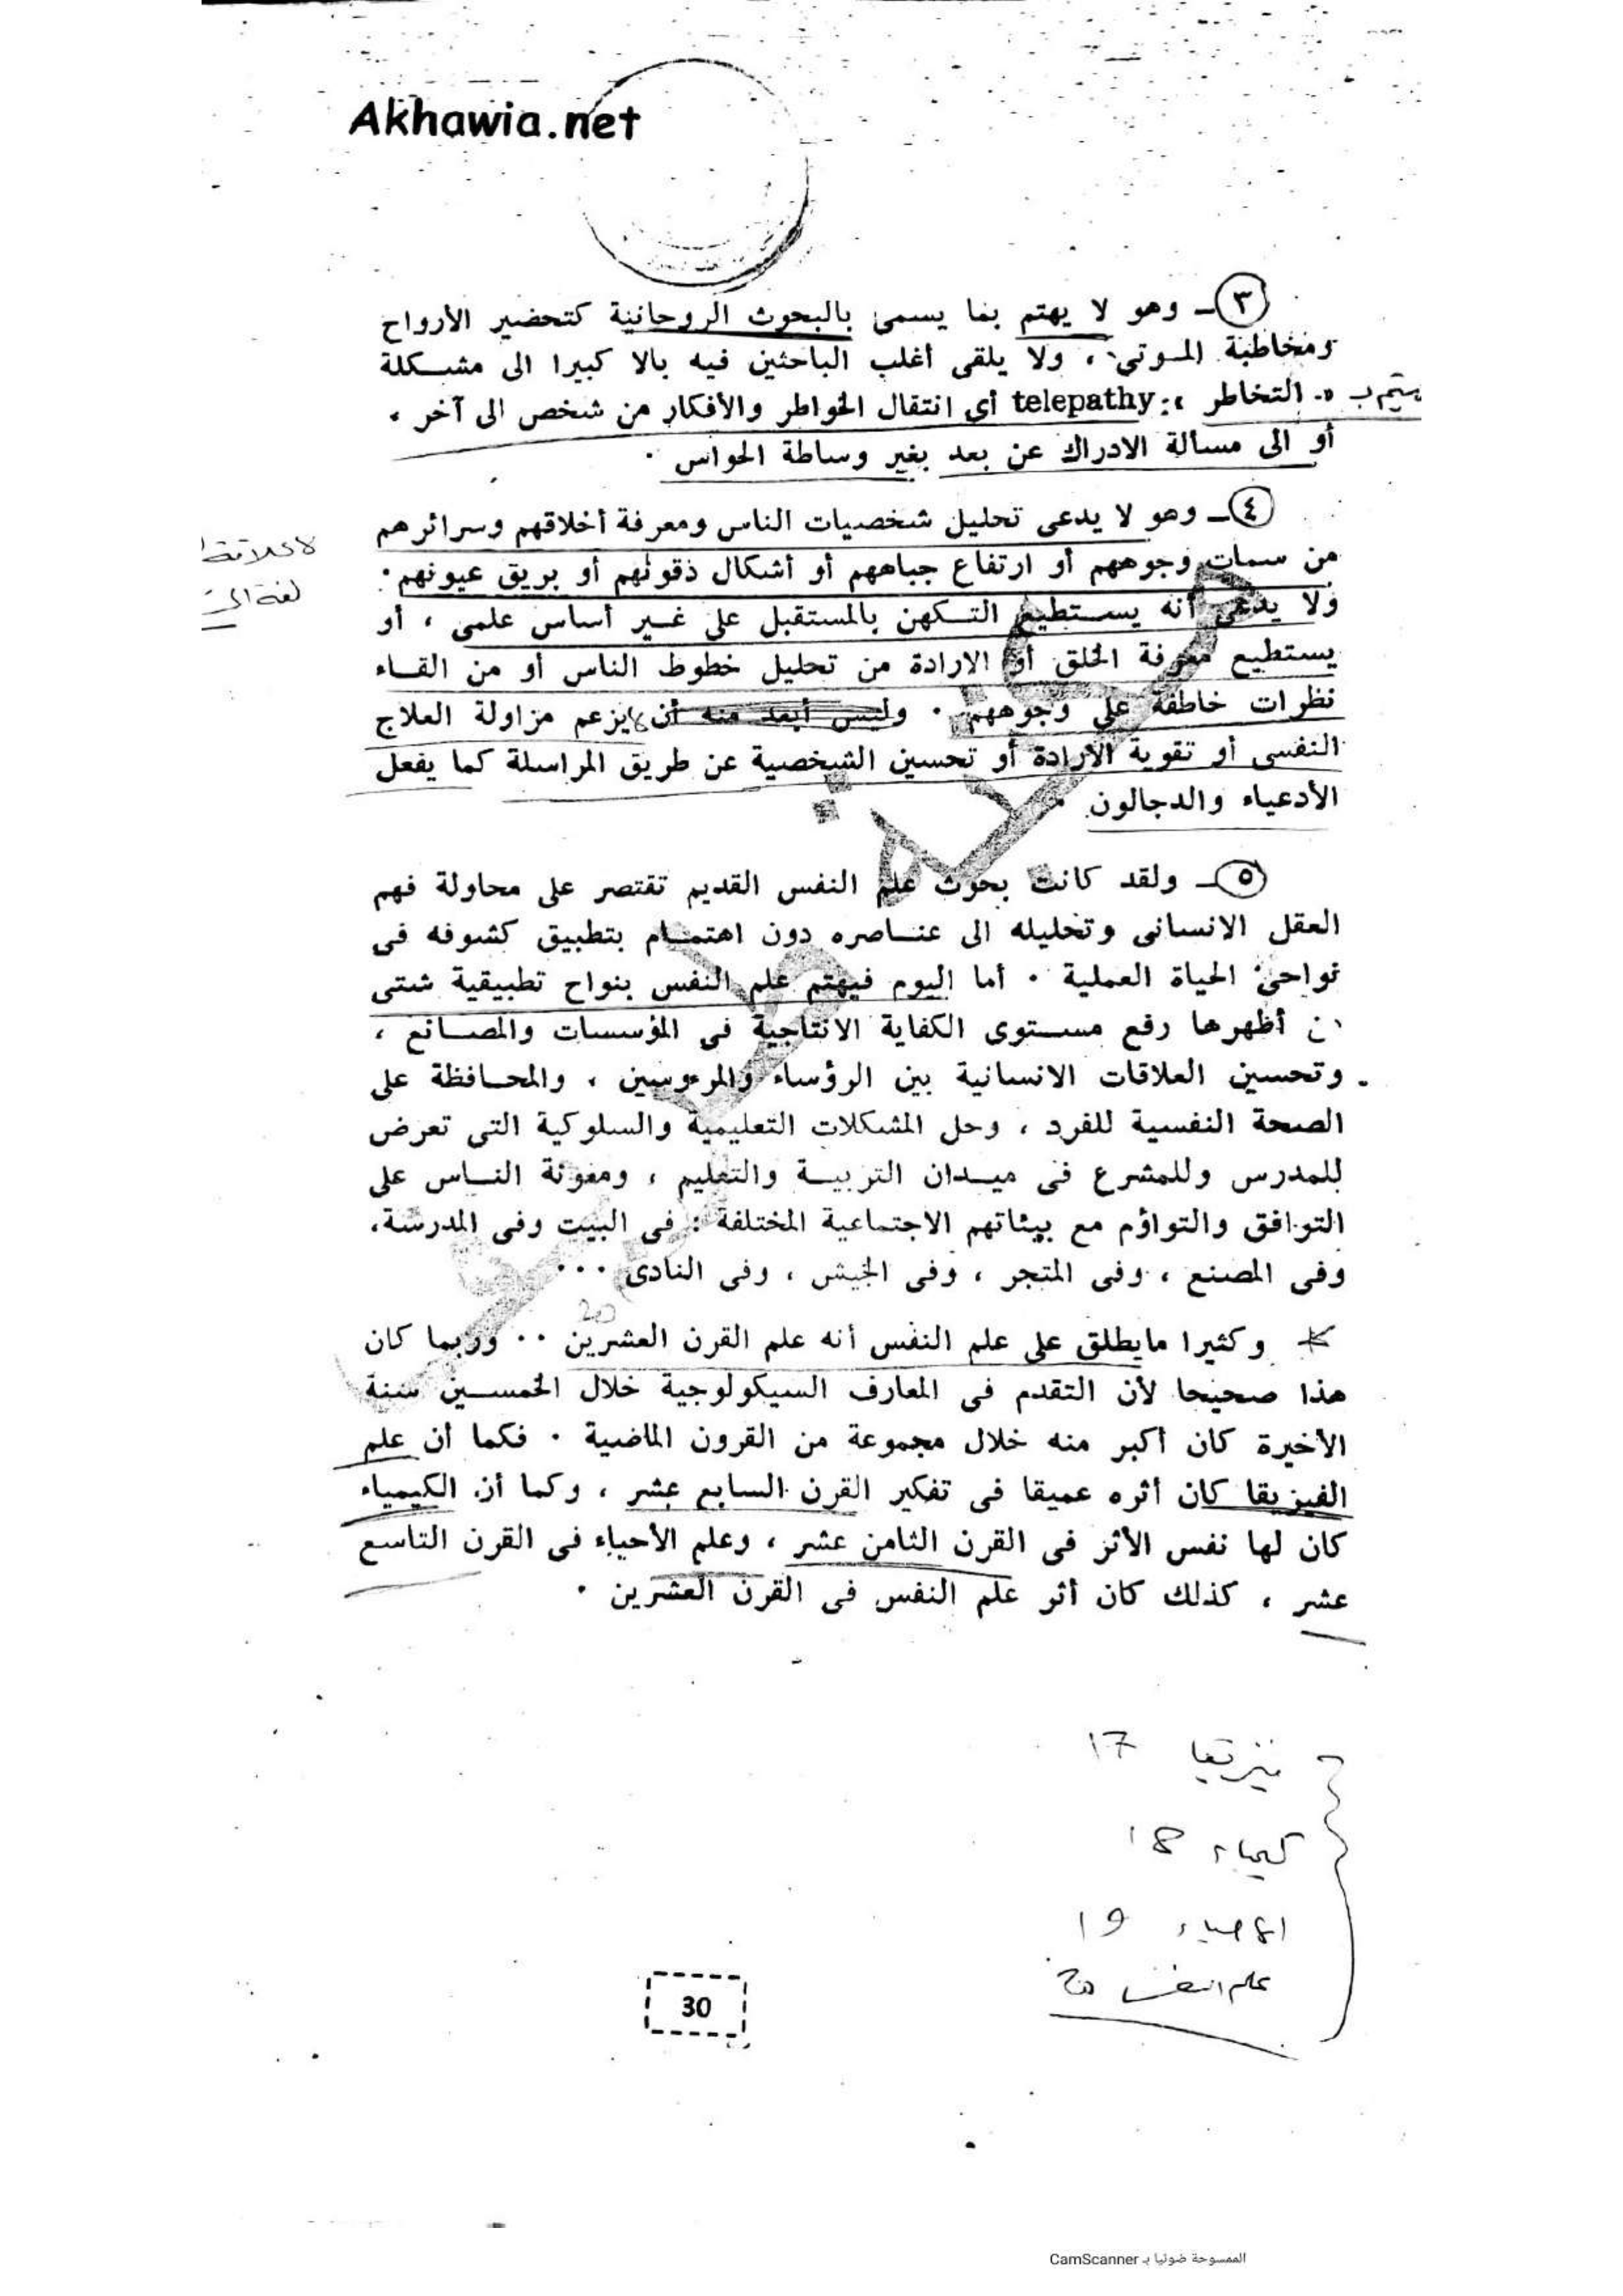 Akhawia.net
٣ ـ وهو لا يهتم بما يسمى بالبحوث الروحانية كتحضير الأرواح
ومخاطبة الموتى ، ولا يلقى أغلب الباحثين فيه بالا كبيرا الى مشكلة
« التخاطر » : telepathy أي انتقال الخواطر والأفكار من شخص الى آخر ،
أو الى مسألة الادراك عن بعد بغير وساطة الحواس .
٤ ـ وهو لا يدعى تحليل شخصيات الناس ومعرفة أخلاقهم وسرائرهم
لا علاقة
من سمات وجوههم أو ارتفاع جباههم أو أشكال ذقونهم أو بريق عيونهم .
ولا يدعى أنه يستطيع التكهن بالمستقبل على غير أساس علمى ، أو
يستطيع معرفة الخلق أو الارادة من تحليل خطوط الناس أو من القاء
نظرات خاطفة على وجوههم . وليس أبعد منه أن يزعم مزاولة العلاج
النفسى أو تقوية الارادة أو تحسين الشخصية عن طريق المراسلة كما يفعل
الأدعياء والدجالون .
٥ ـ ولقد كانت بحوث علم النفس القديم تقتصر على محاولة فهم
العقل الانسانى وتحليله الى عناصره دون اهتمام بتطبيق كشوفه فى
نواحى الحياة العملية . أما اليوم فيهتم علم النفس بنواح تطبيقية شتى
من أظهرها رفع مستوى الكفاية الانتاجية فى المؤسسات والمصانع ،
وتحسين العلاقات الانسانية بين الرؤساء والمرءوسين ، والمحافظة على
الصحة النفسية للفرد ، وحل المشكلات التعليمية والسلوكية التى تعرض
للمدرس وللمشرع فى ميدان التربية والتعليم ، ومعونة الناس على
التوافق والتواؤم مع بيئاتهم الاجتماعية المختلفة : فى البيت وفى المدرسة،
وفى المصنع ، وفى المتجر ، وفى الجيش ، وفى النادى ...
20
وكثيرا مايطلق على علم النفس أنه علم القرن العشرين .. وربما كان
هذا صحيحا لأن التقدم فى المعارف السيكولوجية خلال الخمسين سنة
الأخيرة كان أكبر منه خلال مجموعة من القرون الماضية . فكما أن علم
الفيزيقا كان أثره عميقا فى تفكير القرن السابع عشر ، وكما أن الكيمياء
كان لها نفس الأثر فى القرن الثامن عشر ، وعلم الأحياء فى القرن التاسع
عشر ، كذلك كان أثر علم النفس فى القرن العشرين .
فيزيقا 17
كيمياء 18
الأحياء 19
علم النفس 20
30
الممسوحة ضوئيا بـ CamScanner